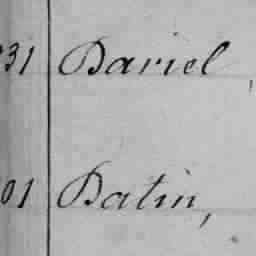 31 Dariel,
01 Datin,